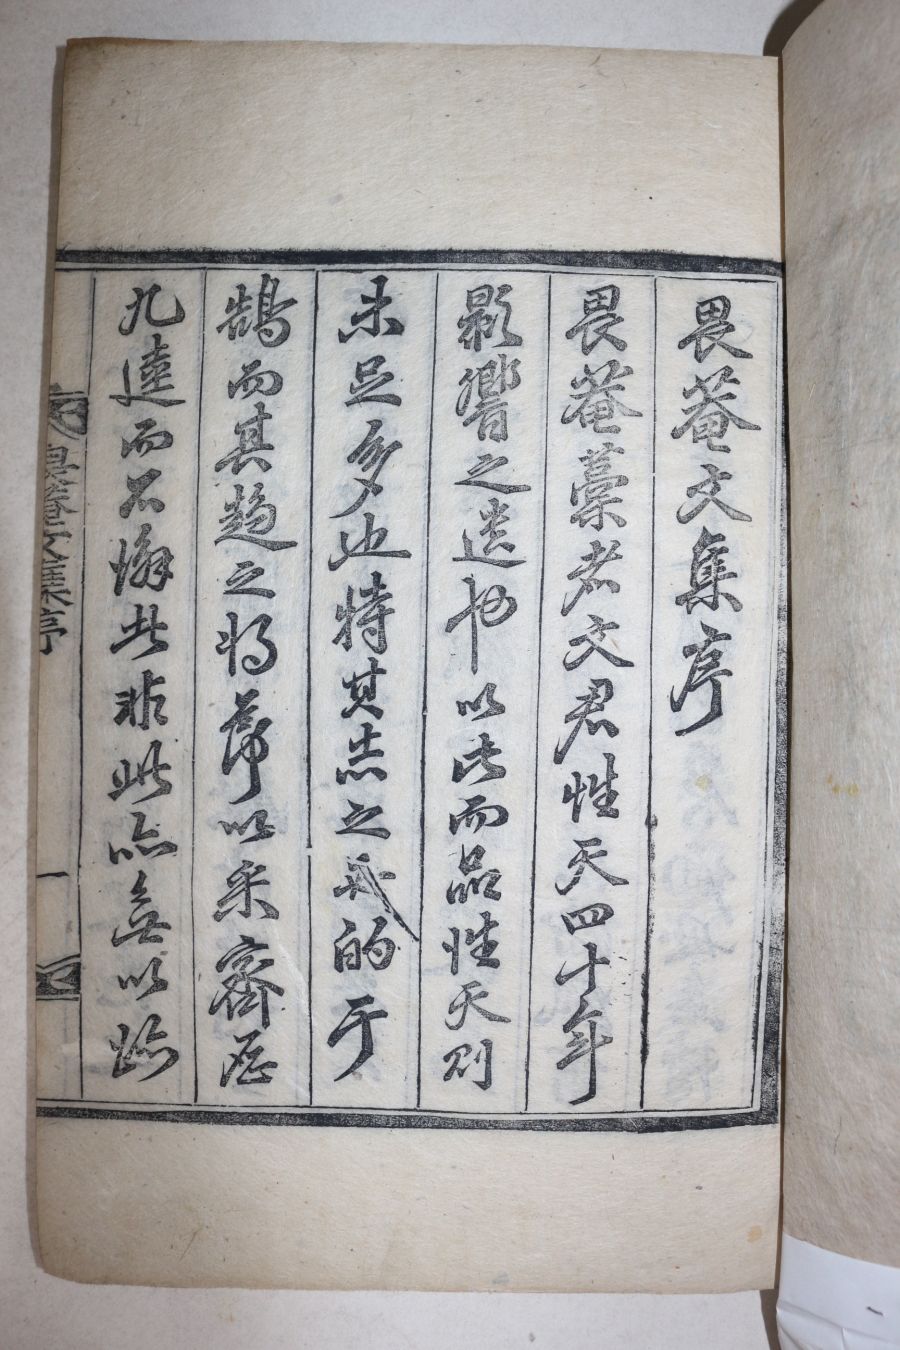 畏菴文集序
畏菴藁者文君性天四十年
影響之遺也以此而品性天則
未足多也特其志之的于
鵠而其趨之將以采齊
九逵而不懈此非此亦無以
畏菴文集序
一